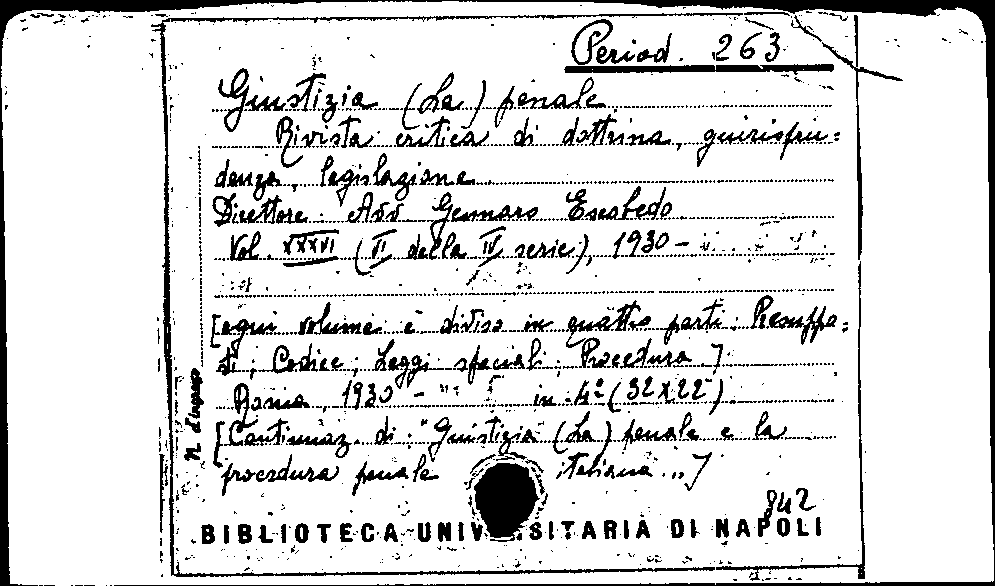 Period. 263
Giustizia (La) penale.
Rivista critica di dottrina, giurispru=
denza, legislazione.
Direttore: Avv. Gennaro Escobedo.
Vol. XXXVI (II della IV serie), 1930 -
[ogni volume è diviso in quattro parti: Presuppo=
sti; Codice; Leggi speciali; Procedura.]
Roma, 1930 - in 4º (32x22).
[Continuaz. di: "Giustizia (La) penale e la
procedura penale italiana..."]
N. d'ingresso
842
BIBLIOTECA UNIVERSITARIA DI NAPOLI